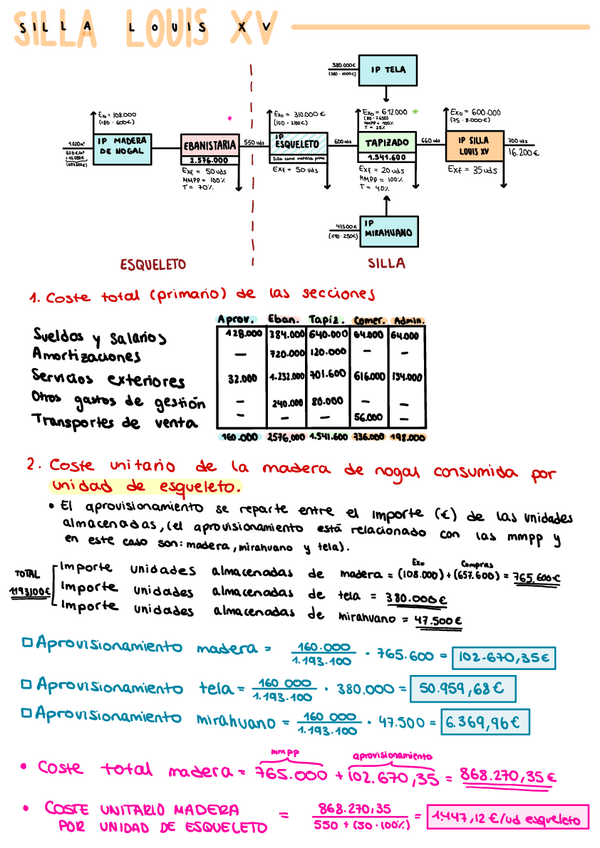 SILLA LOUIS XV
380.000€
(380 · 1000€)
IP TELA
Exo = 108.000
(180 · 600€)
Exo = 310.000€
(100 · 3100€)
Exo = 612.000
MMPP = 100%
T = 25%
Exo = 600.000
(75 · 8.000€)
IP MADERA
DE NOGAL
EBANISTARIA
2.576.000
550 uds
IP
ESQUELETO
Silla como materia prima
600uds
TAPIZADO
1.541.600
660 uds
IP SILLA
LOUIS XV
700 uds
16.200€
ExF = 50 uds
MMPP = 100%
T = 70%
Exf = 50 uds
Exf = 20 uds
MMPP = 100%
T = 40%
ExF = 35 uds
47.500€
(190 · 250€)
IP
MIRAHUANO
ESQUELETO
SILLA
1. Coste total (primario) de las secciones
Aprov. Eban. Tapiz. Comer. Admin.
Sueldos y Salarios 128.000 384.000 640.000 64.000 64.000
Amortizaciones — 720.000 120.000 — —
Servicios exteriores 32.000 1.232.000 701.600 616.000 134.000
Otros gastos de gestión — 240.000 80.000 — —
Transportes de venta — — — 56.000 —
160.000 2576,000 1.541.600 736.000 198.000
2. Coste unitario de la madera de nogal consumida por
unidad de esqueleto.
• El aprovisionamiento se reparte entre el importe (€) de las unidades
almacenadas, (el aprovisionamiento está relacionado con las mmpp y
en este caso son: madera, mirahuano y tela).
Exo Compras
Importe unidades almacenadas de madera = (108.000) + (657.600) = 765.600€
TOTAL
1193.100€
Importe unidades almacenadas de tela = 380.000€
Importe unidades almacenadas de mirahuano = 47.500€
Aprovisionamiento madera = 160.000 / 1.193.100 · 765.600 = 102.670,35€
Aprovisionamiento tela = 160 000 / 1.193.100 · 380.000 = 50.959,68€
Aprovisionamiento mirahuano = 160 000 / 1.193.100 · 47.500 = 6.369,96€
mmpp aprovisionamiento
• Coste total madera = 765.000 + 102.670,35 = 868.270,35€
• COSTE UNITARIO MADERA
POR UNIDAD DE ESQUELETO = 868.270,35 / 550 + (50 · 100%) = 1447,12 €/ud esqueleto